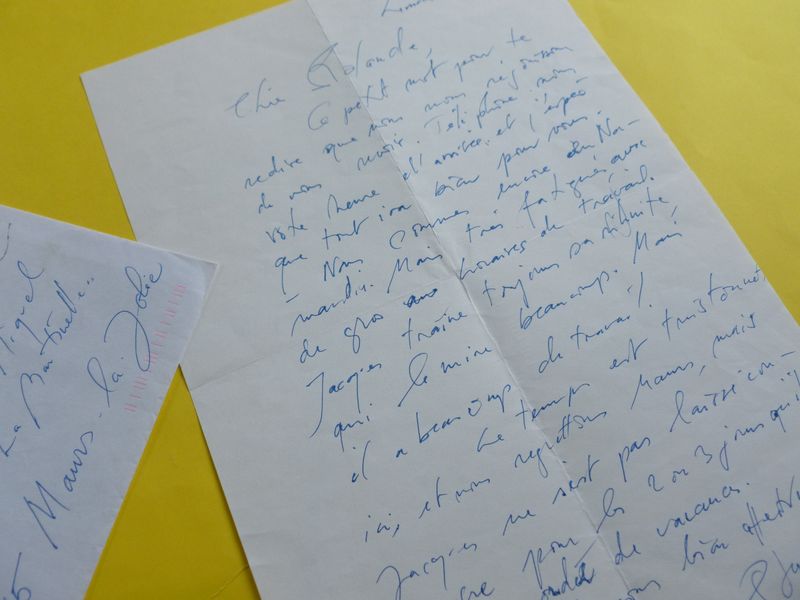 Chère Yolande,
Ce petit mot pour te
redire que nous nous réjouissons
de vous revoir. Téléphone nous
votre heure d'arrivée et j'espère
que tout ira bien pour vous.
- Nous sommes encore en Nor-
mandie. Mais très fatigués avec
de gros horaires de travail.
Jacques traîne toujours sa
qui le mine beaucoup. Mais
il a beaucoup de travail.
Le temps est tristounet,
ici, et nous regrettons Maurs, mais
Jacques ne s'est pas laissé con-
pour les 2 ou 3 jours qu'il
de vacances.
bien
Miquel
La
Maurs-la-Jolie